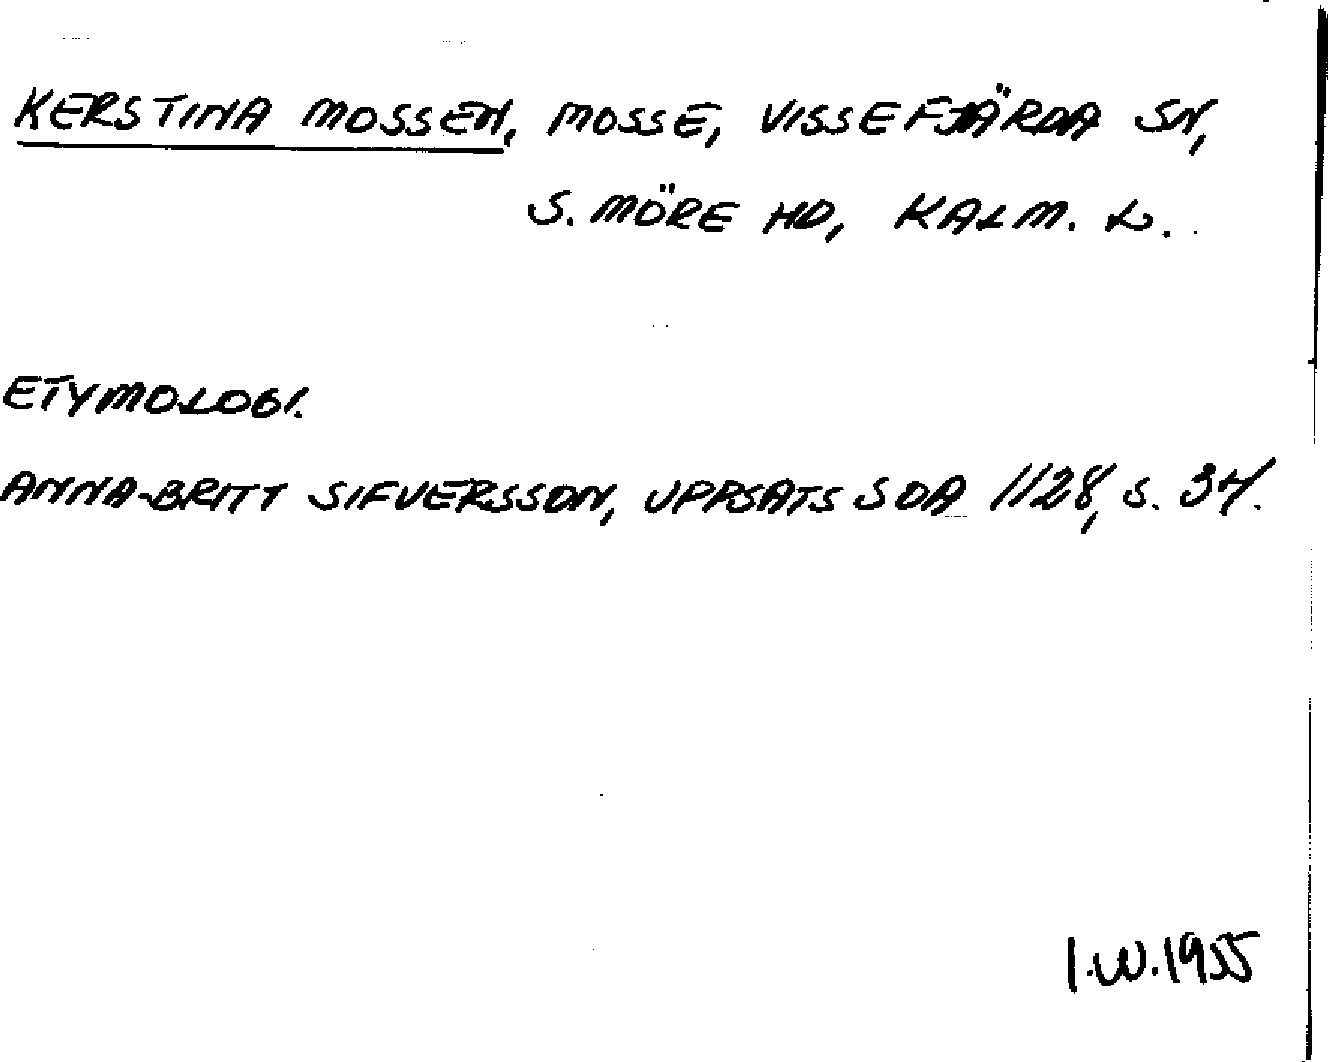 KERSTINA MOSSEN, MOSSE, VISSEFJÄRDA SN,
S. MÖRE HD, KALM. L.
ETYMOLOGI.
ANNA-BRITT SIFVERSSON, UPPSATS SOA 1128, S. 34.
I.W.1955